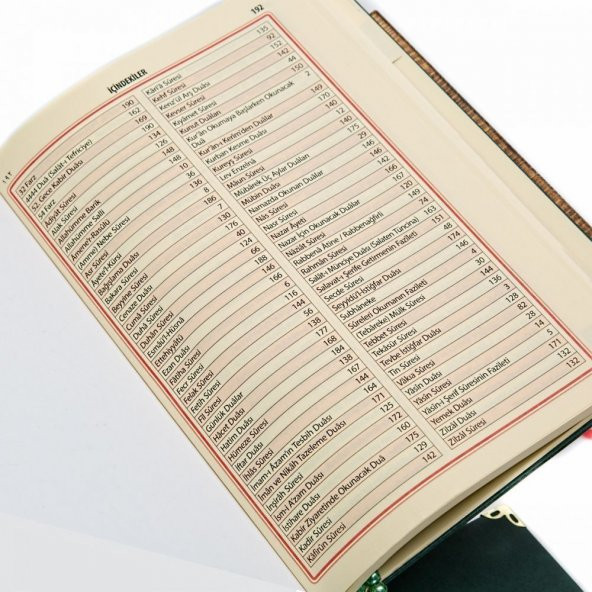 192
İÇİNDEKİLER
32 Farz 190
4444 Duâ (Salât-ı Tefriciye) 162
52. Gece Kabir Duâsı 169
54 Farz 190
Âdiyât Sûresi 134
Alak Sûresi 126
Allahümme Barik 148
Allahümme Salli 148
Amene'r-Rasûlü 10
(Amme) Nebe Sûresi 36
Asr Sûresi 136
Âyete'l-Kürsî 8
Bağışlama Duâsı 186
Bakara Sûresi 7
Beyyine Sûresi 130
Cenaze Duâsı 176
Cumâ Sûresi 40
Duhâ Sûresi 124
Duhân Sûresi 66
Esmâü'l-Hüsnâ 188
Ettehiyyâtü 146
Ezan Duâsı 166
Fâtiha Sûresi 6
Fecr Sûresi 116
Felak Sûresi 144
Fetih Sûresi 56
Fîl Sûresi 138
Günlük Duâlar 177
Hâcet Duâsı 168
Hatim Duâsı 184
Hümeze Sûresi 138
İftar Duâsı 167
İhlâs Sûresi 144
İmam-ı Âzam'ın Tesbih Duâsı 164
İmân ve Nikâh Tazeleme Duâsı 171
İnşirâh Sûresi 125
İsm-i A'zam Duâsı 172
İstihare Duâsı 160
Kabir Ziyaretinde Okunacak Duâ 175
Kadir Sûresi 129
Kâfirûn Sûresi 142
Kâri'a Sûresi 135
Kehf Sûresi 92
Kenzü'l Arş Duâsı 152
Kevser Sûresi 142
Kıyâmet Sûresi 44
Kunut Duâları 150
Kur'ân Okumaya Başlarken Okunacak
Duâ 2
Kur'ân-ı Kerîm'den Duâlar 149
Kurban Kesme Duâsı 170
Kureyş Sûresi 140
Lev Enzelnâ 12
Mâûn Sûresi 140
Mübârek Üç Aylar Duâları 175
Duâsı 29
Namazda Okunan Duâlar 146
Nâs Sûresi 146
Nasr Sûresi 142
Nazar Âyeti 166
Nazar İçin Okunacak Duâlar 167
Nâziât Sûresi 120
Rabbenâ Âtine / Rabbenağfirlî 149
Rahmân Sûresi 74
Salât-ı Münciye Duâsı (Salaten Tüncina) 163
Salavat-ı Şerîfe Getirmenin Fazileti 151
Secde Sûresi 48
Seyyidü'l-İstiğfar Duâsı 174
Subhâneke 146
Sûreleri Okumanın Fazileti 4
(Tebâreke) Mülk Sûresi 30
Tebbet Sûresi 144
Tekâsür Sûresi 136
Tevbe İstiğfar Duâsı 3
Tîn Sûresi 128
Vâkıa Sûresi 82
Yâsîn Duâsı 28
Yâsîn Sûresi 14
Yâsîn-i Şerîf Sûresinin Fazileti 5
Yemek Duâsı 171
Zilzâl Duâsı 132
Zilzâl Sûresi 132